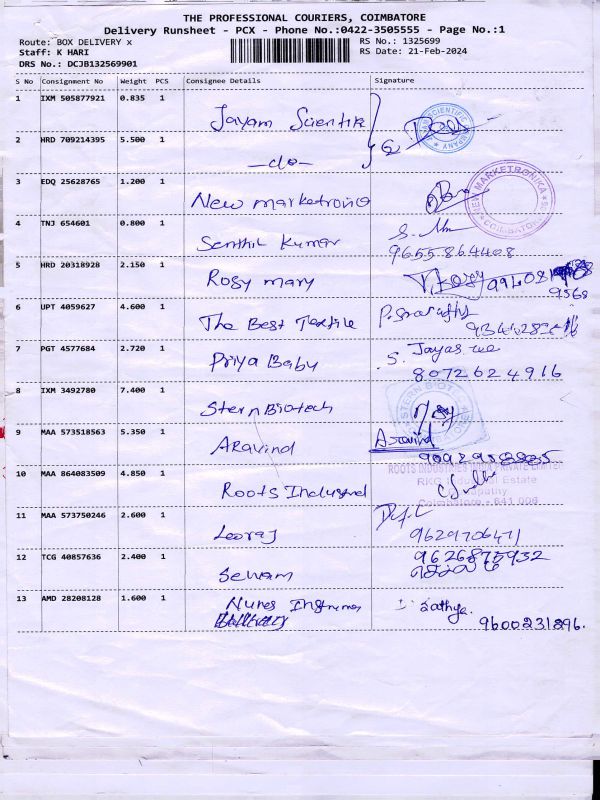 THE PROFESSIONAL COURIERS, COIMBATORE
Delivery Runsheet - PCX - Phone No.:0422-3505555 - Page No.:1
Route: BOX DELIVERY x RS No.: 1325699
Staff: K HARI RS Date: 21-Feb-2024
DRS No.: DCJB132569901
S No Consignment No Weight PCS Consignee Details Signature
1 IXM 505877921 0.835 1 Jayam Scientifik
2 HRD 709214395 5.500 1 -do-
3 EDQ 25628765 1.200 1 New marketronic
NEW MARKETRONIKA COIMBATORE
4 TNJ 654601 0.800 1 Senthil Kumar
9655864408
5 HRD 20318928 2.150 1 Rosy mary
6 UPT 4059627 4.600 1 The Best Textile
7 PGT 4577684 2.720 1 Priya Baby S. Jayasree
8072624916
8 IXM 3492780 7.400 1 Stern Biotech
STERN BIOTECH
9 MAA 573518563 5.350 1 Aravind Aravind
10 MAA 864083509 4.850 1 Roots Industrial
ROOTS INDUSTRIES INDIA PRIVATE LIMITED
RKG Industrial Estate
Ganapathy
Coimbatore - 641 006
11 MAA 573750246 2.600 1 Leoraj
12 TCG 40857636 2.400 1 Selvam
9626875932
13 AMD 28208128 1.600 1 Sathya.
9600231896.